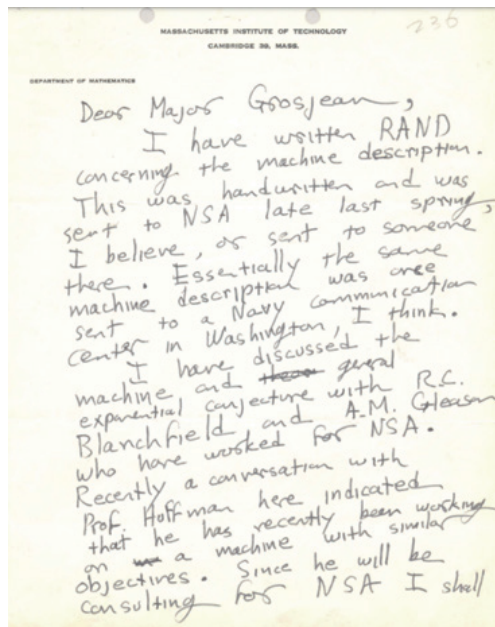 236
MASSACHUSETTS INSTITUTE OF TECHNOLOGY
CAMBRIDGE 39, MASS.
DEPARTMENT OF MATHEMATICS
Dear Major Grosjean,
I have written RAND
concerning the machine description.
This was handwritten and was
sent to NSA late last spring,
I believe, or sent to someone
there. Essentially the same
machine description was once
sent to a Navy communication
center in Washington, I think.
I have discussed the
machine and geeral
exponential conjecture with R.C.
Blanchfield and A.M. Gleason
who have worked for NSA.
Recently a conversation with
Prof. Hoffman here indicated
that he has recently been working
on a machine with similar
objectives. Since he will be
consulting for NSA I shall